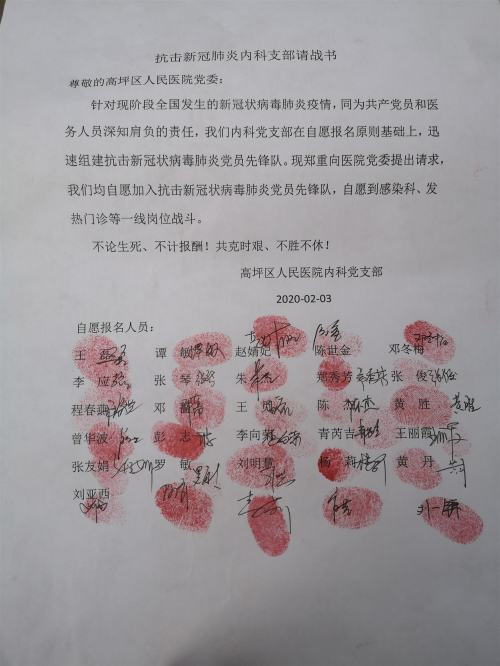 抗击新冠肺炎内科支部请战书
尊敬的高坪区人民医院党委：
针对现阶段全国发生的新冠状病毒肺炎疫情，同为共产党员和医
务人员深知肩负的责任，我们内科党支部在自愿报名原则基础上，迅
速组建抗击新冠状病毒肺炎党员先锋队。现郑重向医院党委提出请求，
我们均自愿加入抗击新冠状病毒肺炎党员先锋队，自愿到感染科、发
热门诊等一线岗位战斗。
不论生死、不计报酬！共克时艰、不胜不休！
高坪区人民医院内科党支部
2020-02-03
自愿报名人员：
王 谭 敏 赵婧妃 陈世金 邓冬梅
李 应 张 琴 朱 郑秀芳 张 俊
程春燕 邓 王 陈 杰 黄 胜
曾华波 彭 志 李向 青芮吉 王丽霞
张友娟 罗 敏 刘明 杨 莉 黄 丹
刘亚西